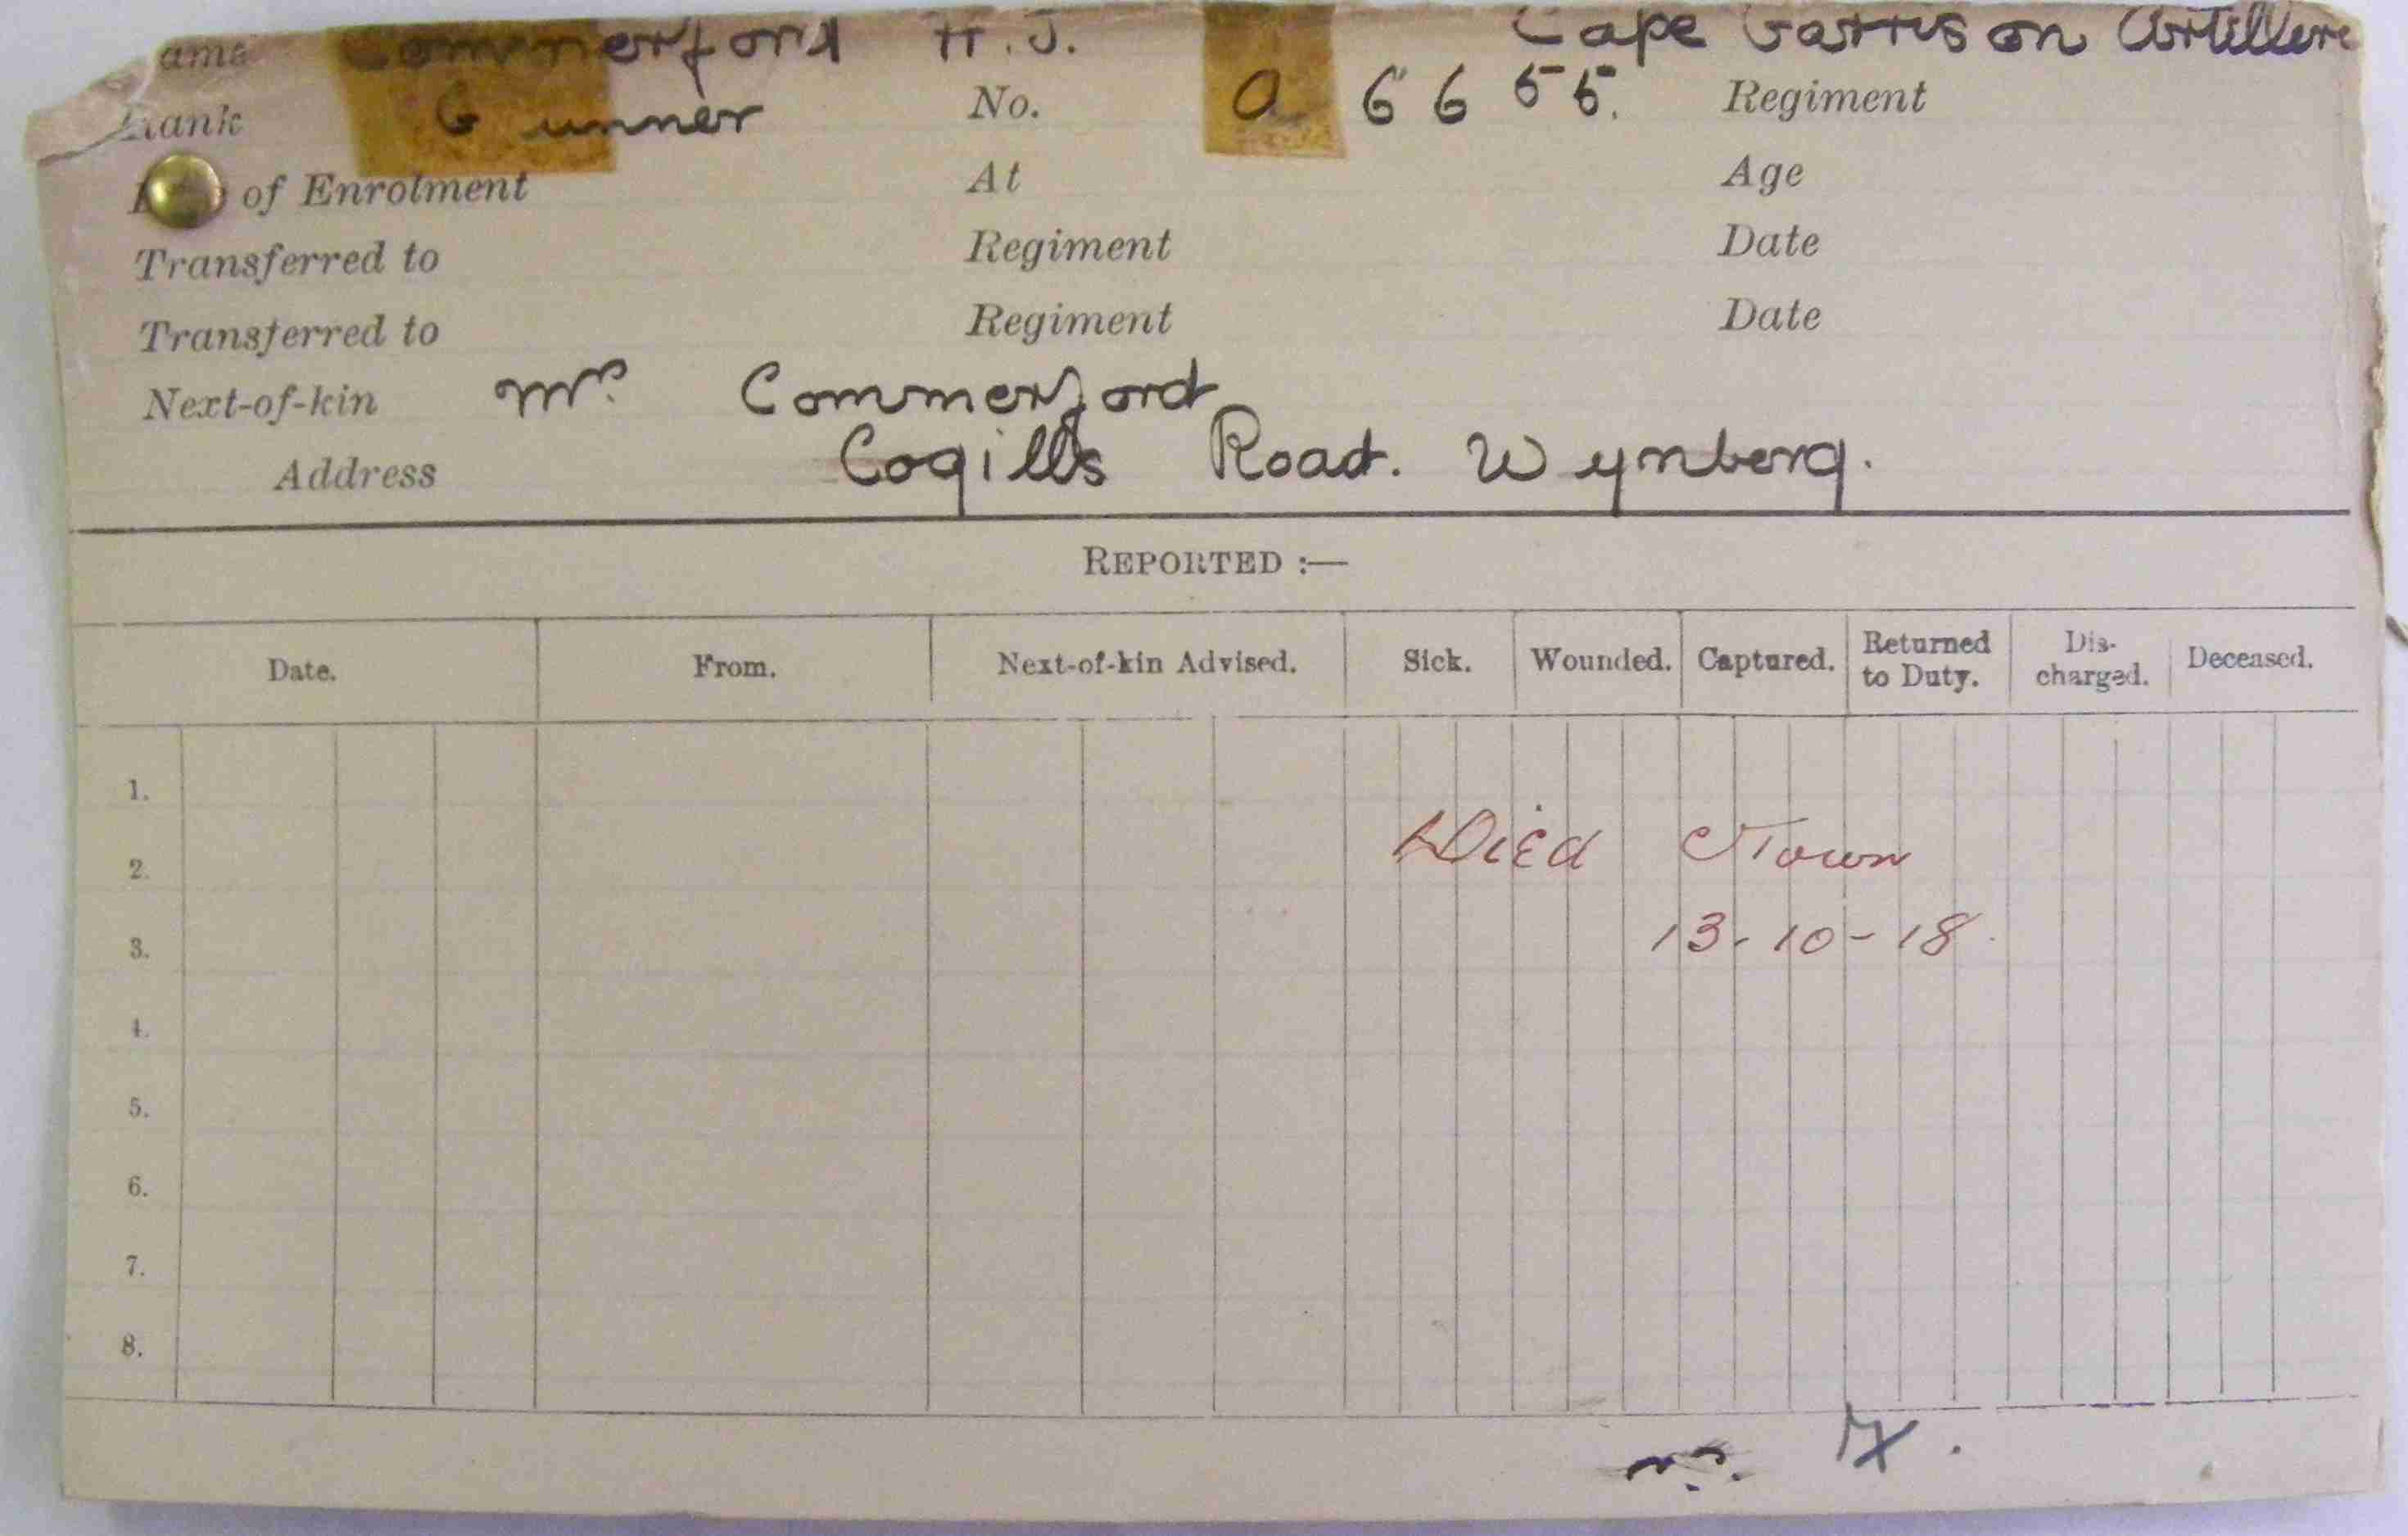 ame Commerford H.J. Cape Garrison Artillery
Rank Gunner No. a 6655. Regiment
of Enrolment At Age
Transferred to Regiment Date
Transferred to Regiment Date
Next-of-kin Mr. Commerford
Address Cogills Road. Wynberg.
REPORTED :—
Date. From. Next-of-kin Advised. Sick. Wounded. Captured. Returned to Duty. Dis-charged. Deceased.
1.
2. Died CTown
3. 13-10-18.
4.
5.
6.
7.
8.